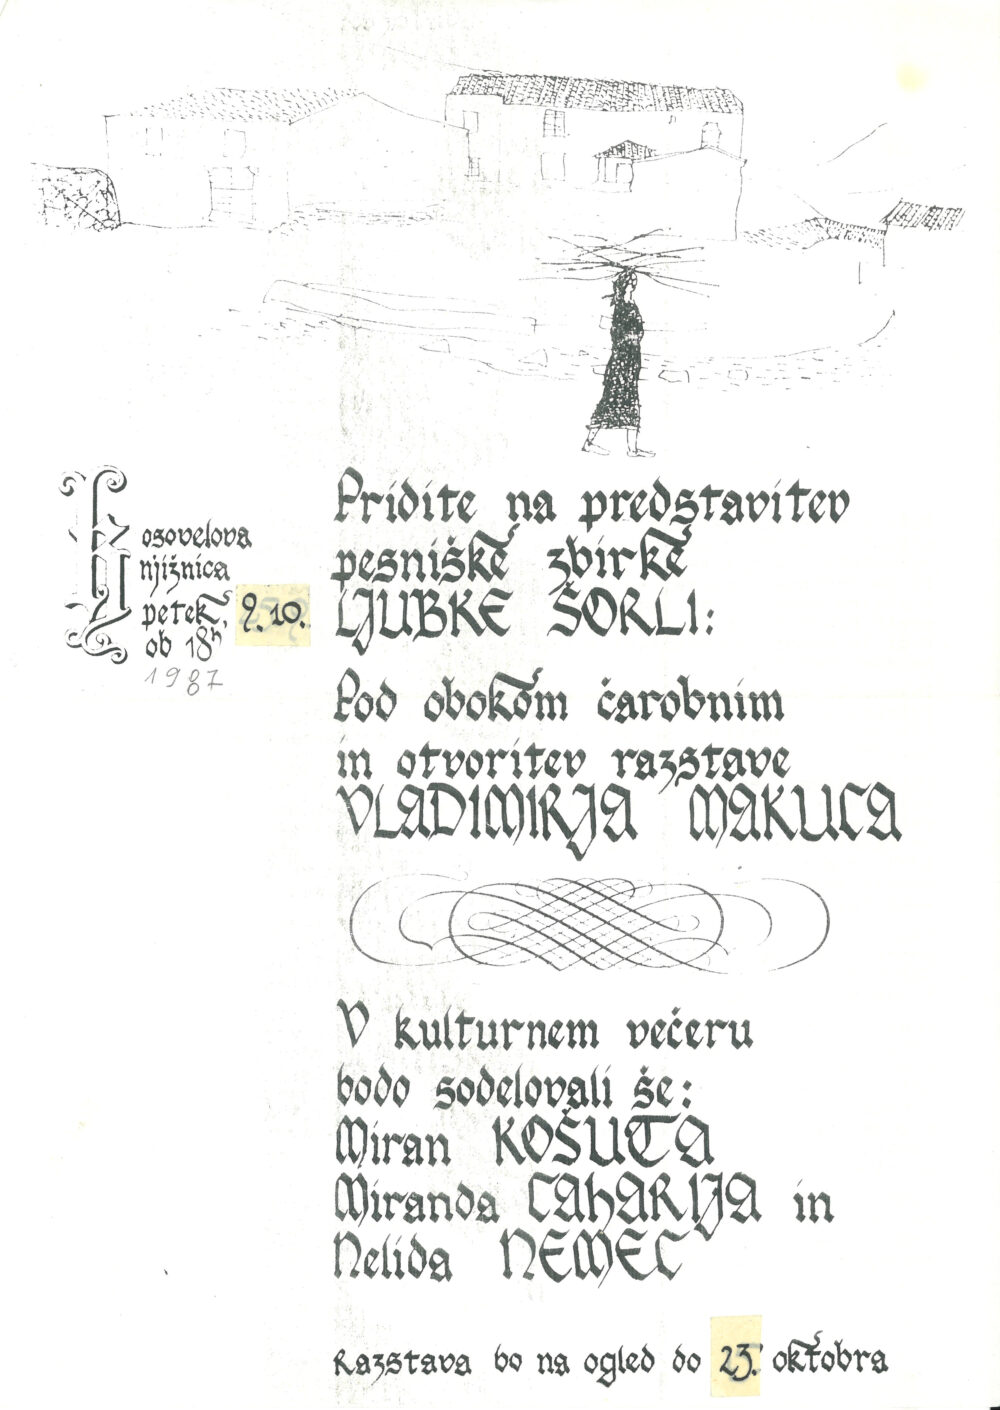 Kosovelova
knjižnica
petek, 9.10.
ob 18h
1987
Pridite na predstavitev
pesniške zbirke
LJUBKE ŠORLI:
Pod obokom čarobnim
in otvoritev razstave
VLADIMIRJA MAKUCA
V kulturnem večeru
bodo sodelovali še:
Miran KOŠUTA
Miranda CAHARIJA in
Nelida NEMEC
Razstava bo na ogled do 23. oktobra